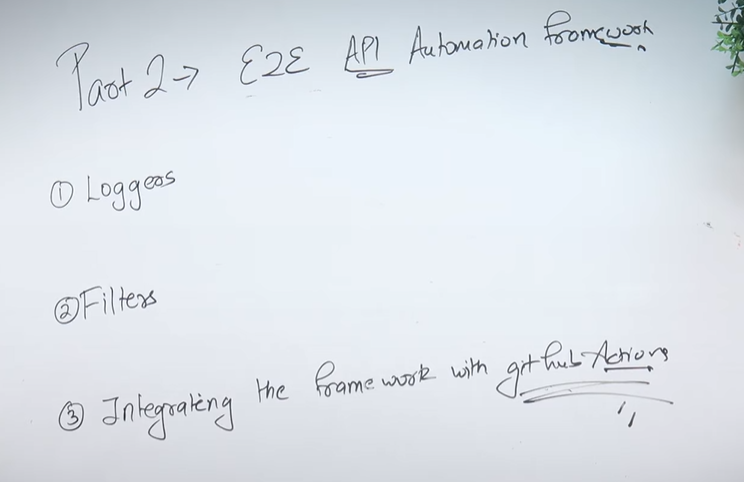 Part 2→ E2E API Automation Framework
① Loggers
② Filters
③ Integrating the framework with github Actions